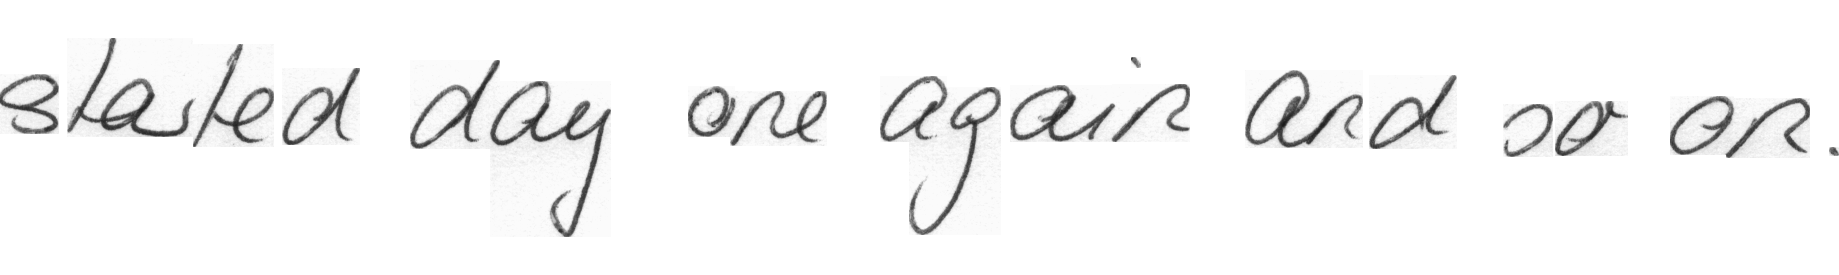 started day one again and so on.